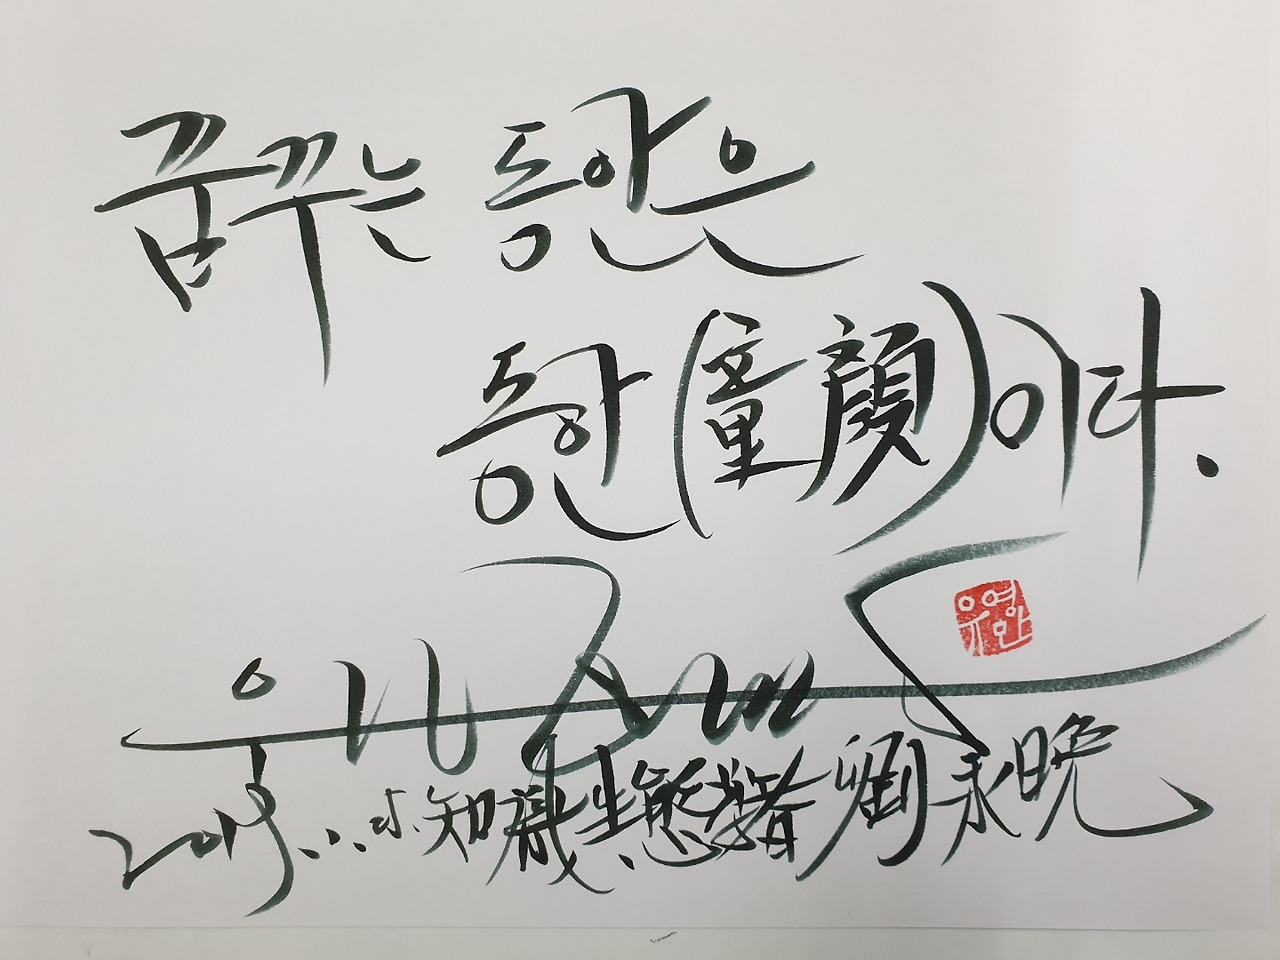 꿈꾸는 동안은
동안(童顔)이다.
유영만
知識生態學者 劉永晩